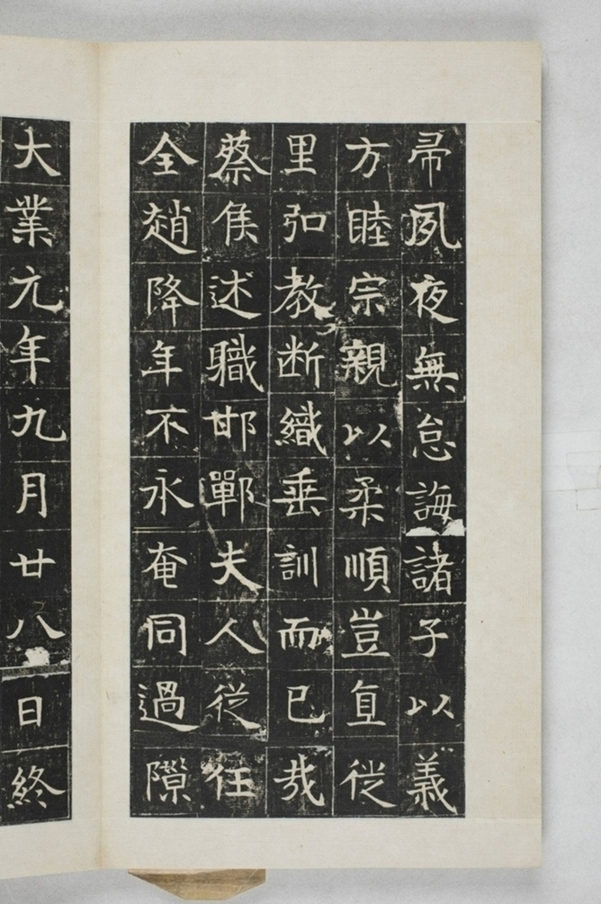 帚夙夜無怠誨諸子以義
方睦宗親以柔順豈直從
里弘教断織垂訓而已哉
蔡侯述職邯鄲夫人從任
全趙降年不永奄同過隙
大業元年九月廿八日終